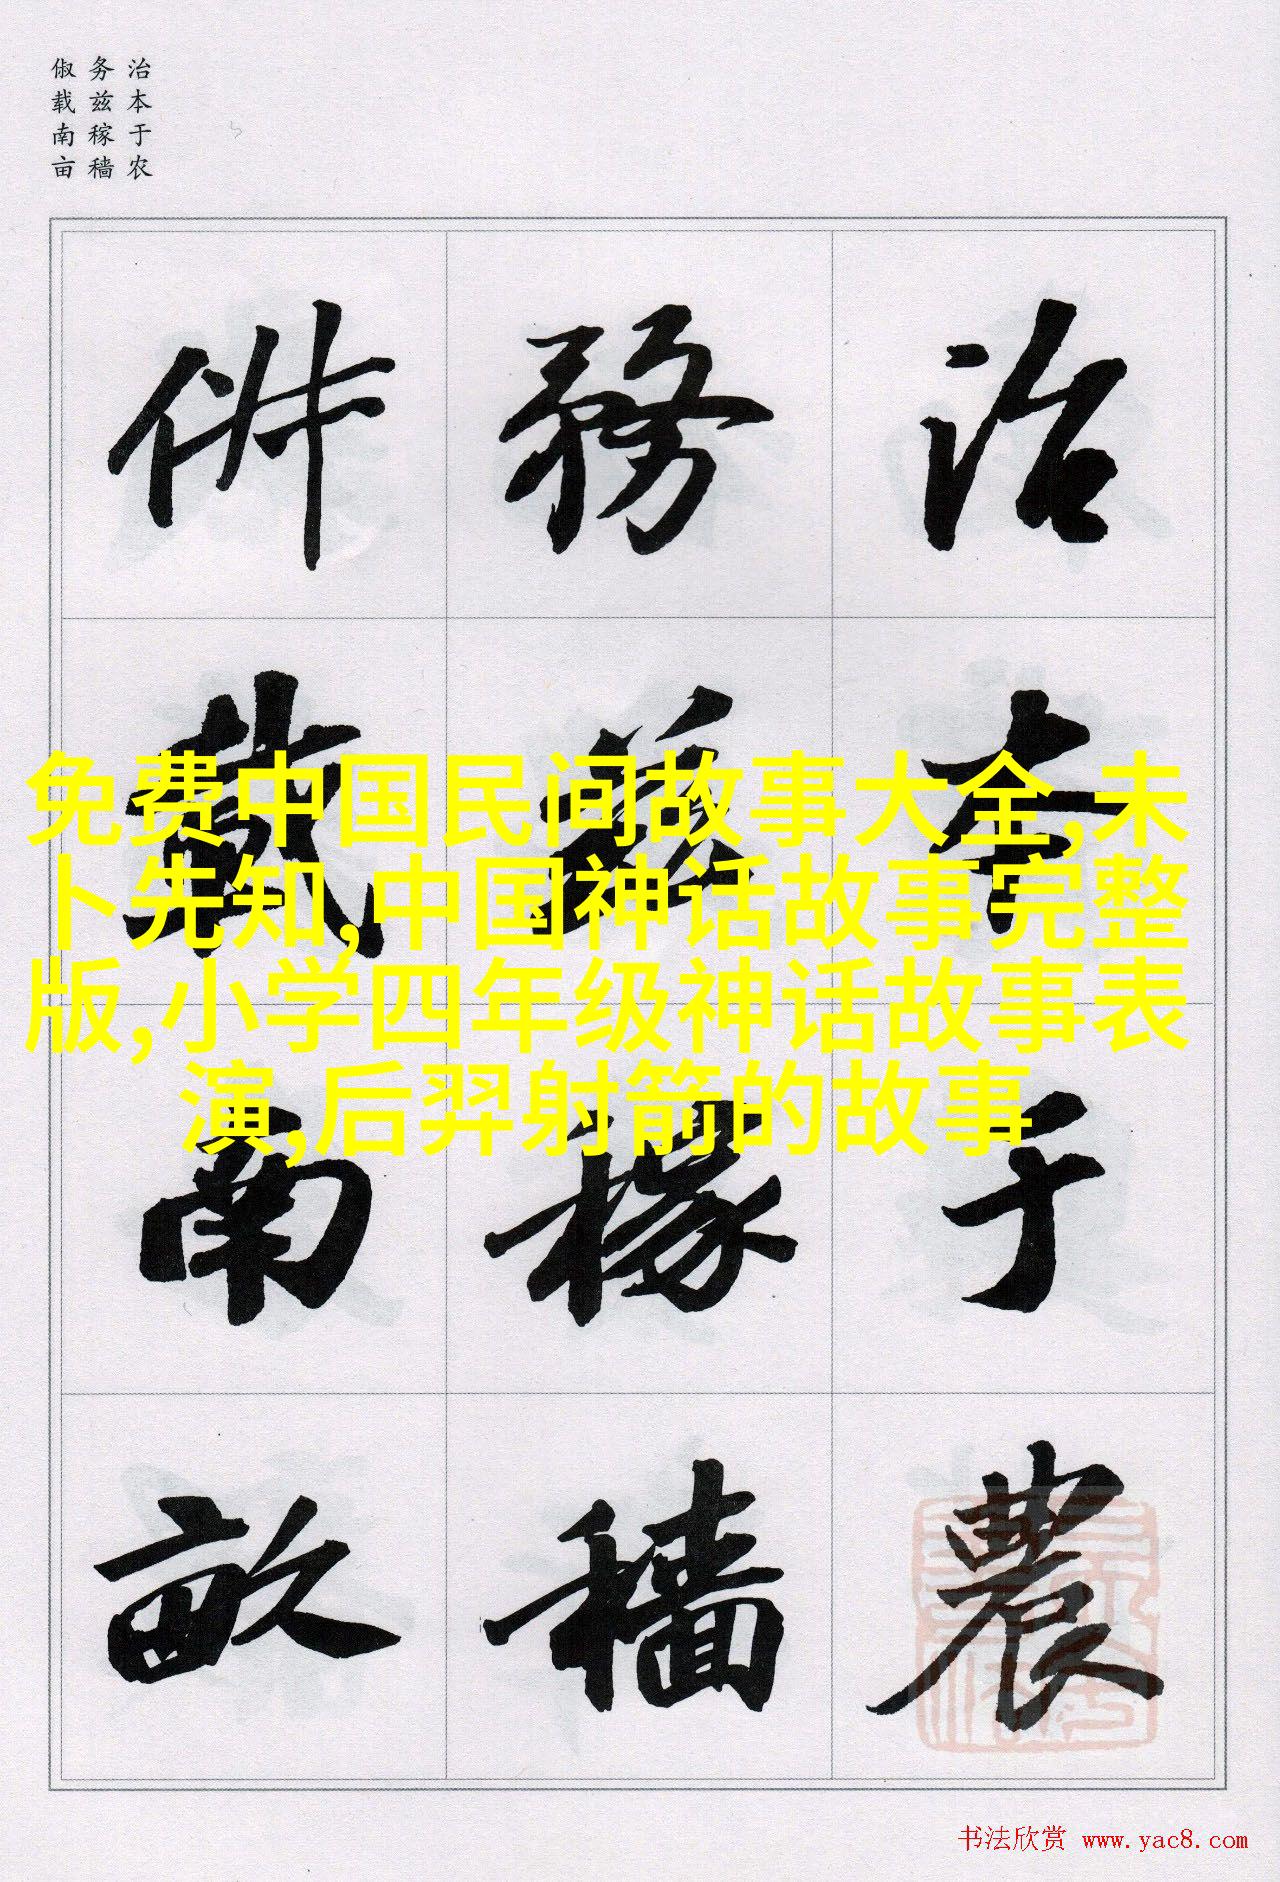 治本于农
务兹稼穑
俶载南亩
治本于農
務茲稼穡
俶載南畝
免费中国民间故事大全,未
卜先知,中国神话故事完整
版,小学四年级神话故事表
演,后羿射箭的故事
书法欣赏 www.yac8.com